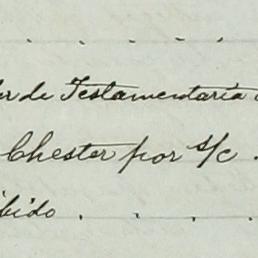 er de Testamentaria
Chester por s/c.
ibido